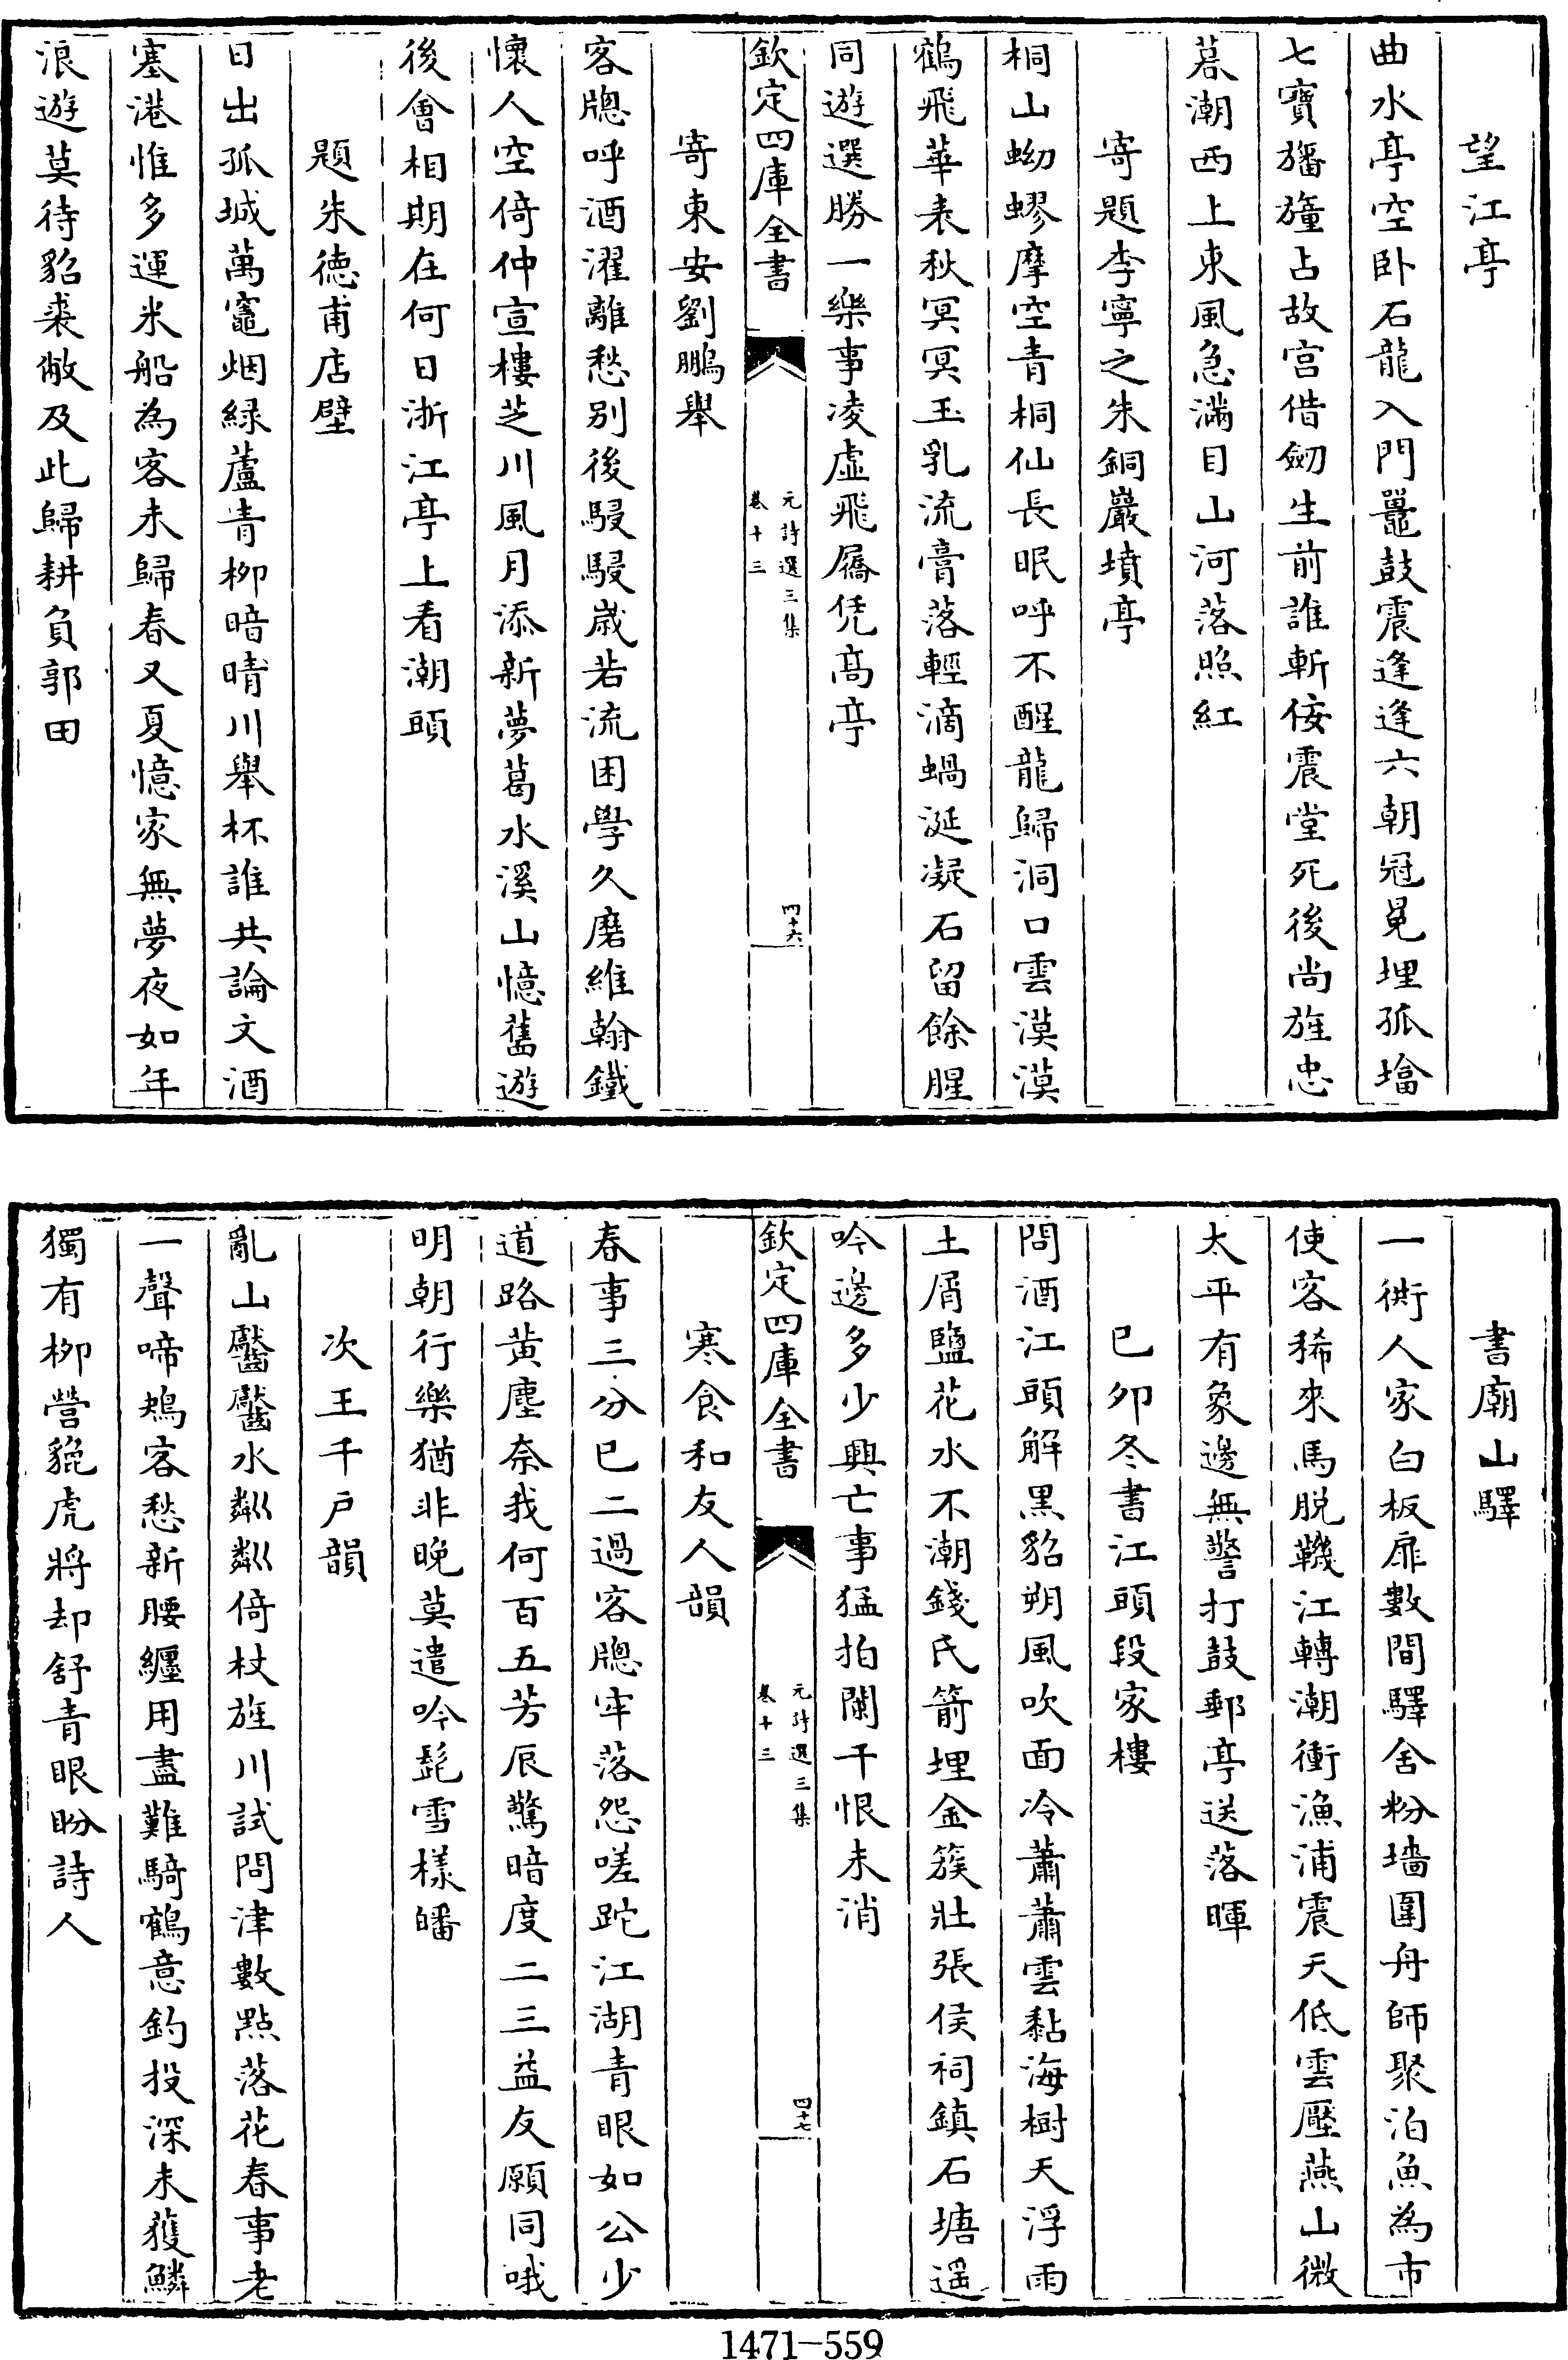 望江亭
曲水亭空卧石龍入門鼉鼓震逢逢六朝冠冕埋孤墖
七寶旛旛占故宮借劒生前誰斬佞震堂死後尚旌忠
暮潮西上東風急滿目山河落照紅
寄題李寧之朱銅巖墳亭
桐山蚴蟉摩空青桐仙長眠呼不醒龍歸洞口雲漠漠
鶴飛華表秋冥冥玉乳流膏落輕滴蝸涎凝石留餘腥
同遊選勝一樂事凌虛飛屩凭髙亭
欽定四庫全書
元詩選三集
卷十三
四十六
寄東安劉鵬舉
客牕呼酒濯離愁别後駸駸嵗若流困學久磨維翰鐵
懷人空倚仲宣樓芝川風月添新夢葛水溪山憶舊遊
後會相期在何日浙江亭上看潮頭
題朱徳甫店壁
日出孤城萬竈烟緑蘆青栁暗晴川舉杯誰共論文酒
塞港惟多運米船為客未歸春又夏憶家無夢夜如年
浪遊莫待貂裘敝及此歸耕負郭田
書廟山驛
一衖人家白板扉數間驛舍粉墻圍舟師聚泊魚為市
使客稀來馬脱鞿江轉潮衝漁浦震天低雲壓燕山微
太平有象邊無警打鼓郵亭送落暉
已夘冬書江頭段家樓
問酒江頭解黒貂朔風吹面冷蕭蕭雲黏海樹天浮雨
土屑鹽花水不潮錢氏箭埋金簇壯張侯祠鎮石塘遥
吟邊多少興亡事猛拍闌干恨未消
欽定四庫全書
元詩選三集
卷十三
四十七
寒食和友人韻
春事三分已二過客牕牢落怨嗟跎江湖青眼如公少
道路黄塵奈我何百五芳辰驚暗度二三益友願同哦
明朝行樂猶非晚莫遣吟髭雪樣皤
次王千戸韻
亂山齾齾水粼粼倚杖旌川試問津數點落花春事老
一聲啼鴂客愁新腰纒用盡難騎鶴意釣投深未獲鱗
獨有栁營貔虎將却舒青眼盼詩人
1471-559